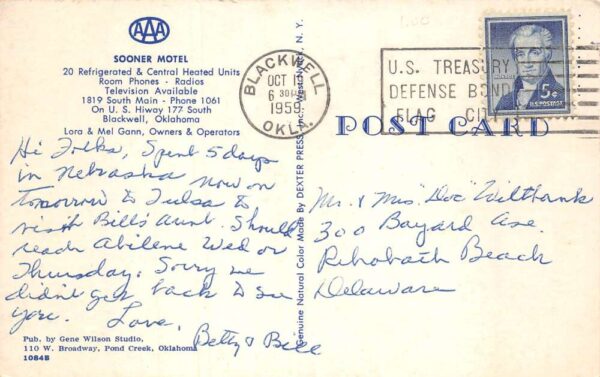 AAA
SOONER MOTEL
20 Refrigerated & Central Heated Units
Room Phones - Radios
Television Available
1819 South Main - Phone 1061
On U. S. Hiway 177 South
Blackwell, Oklahoma
Lora & Mel Gann, Owners & Operators
Hi Folks, Spent 5 days
in Nebraska now on
tomorrow to Tulsa to
visit Bill's Aunt. Should
reach Abilene Wed or
Thursday. Sorry we
didn't get back to see
you. Love,
Betty & Bill
Pub. by Gene Wilson Studio,
110 W. Broadway, Pond Creek, Oklahoma
10845
Genuine Natural Color Made By DEXTER PRESS, Inc. West Nyack, N. Y.
1.00
BLACKWELL
OCT
6 30
1959
OKLA.
U.S. TREASURY
DEFENSE BOND
FLAG CITY
5¢
U.S. POSTAGE
POST CARD
Mr. & Mrs. "Doc" Wiltbank
300 Bayard Ave.
Rehobath Beach
Delaware